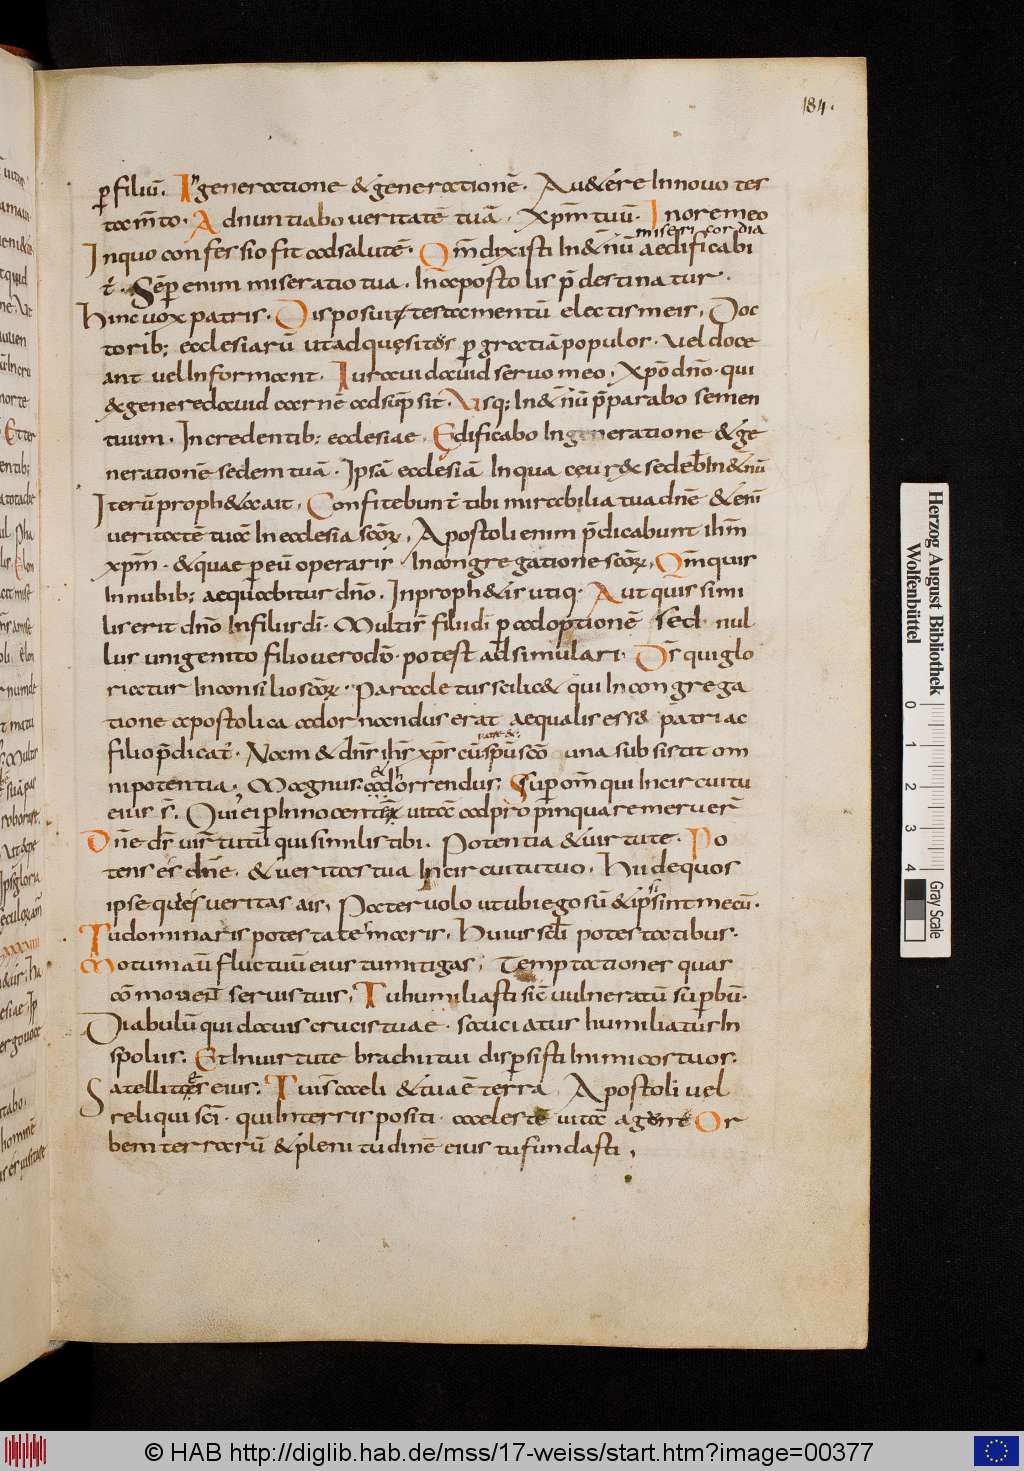 184.
ꝑ filiū. In generatione & generationē. Au&ere Innouo tes
tam̄to. Adnuntiabo ueritatē tuā. Xp̄m tuū. Inore meo
misericordia
Inquo confessio fit adsalutē. Qm̄ dixisti In&nū aedificabi
t̄. Sēꝑ enim miseratio tua. Inapostolis p̄destinatur.
Hinc uox patris. Disposui testamentū electis meis. Doc
torib; ecclesiarū ut adquęsitos ꝑ gratiā populos. uel doce
ant uel Informant. Iuraui dauid seruo meo. Xp̄o dn̄o. qui
&genere dauid carnē adsūpsit. Usq; In&nū p̄parabo semen
tuum. Incredentib; ecclesiae. Edificabo Ingeneratione &ge
nerationē sedem tuā. Ipsā ecclesiā Inqua ceu r&sedeb̄ In&nū
Iterū proph&a ait. Confitebunt̄ tibi mirabilia tua dn̄e &enī
ueritatē tuā In ecclesia scōꝝ. Apostoli enim p̄dicabunt ihm̄
xp̄m. &quae ꝑ eū operaris. Incongregatione scōꝝ. Qm̄ quis
Innubib; aequabitur dn̄o. Inproph&is utiq. Aut quis simi
lis erit dn̄o Infiliis dī. Multis filii dī ꝑ adoptionē sed nul
lus unigenito filio uero dō potest adsimulari. Ds̄ qui glo
riatur Inconsilio scōꝝ. Paracletus scilic& qui Incongrega
tione apostolica adornandus erat aequalis esse patri ac
filio p̄dicat̄. Nam & dn̄s ih̄s xp̄s cū spū scō una subsistit om
patre &
nipotentia. Magnus adhorrendus; Suꝑ om̄ qui Incircuitu
eius s̄. Qui ei ꝑ Innocentē uitā adpropinquare meruer̄
Dn̄e ds̄ uirtutū quis similis tibi. Potentia &uirtute. Po
tens es dn̄e. &ueritas tua Incircuitu tuo. Hii de quos
ipse qui es ueritas ais. Pater uolo ut ubi ego sū &ipsi sint mecū.
Tu dominaris potestate maris. Huius scl̄i potestatibus.
Motum aū fluctuū eius tu mitigas; Temptationes quas
cōmouent seruis tuis. Tu humiliasti sic̄ uulneratū suꝑbū.
Diabulū qui dauis crucis tuae. sauciatus humiliatus In
spoliis. Et Inuirtute brachii tui disꝑsisti Inimicos tuos.
Satellites eius. Tui s̄ caeli &tua ē terra. Apostoli uel
reliqui scī. qui Interris positi. caeleste uitā agere Or
bem terrarū &plenitudinē eius tu fundasti.
Herzog August Bibliothek
Wolfenbüttel
0 1 2 3 4
Gray Scale
© HAB http://diglib.hab.de/mss/17-weiss/start.htm?image=00377